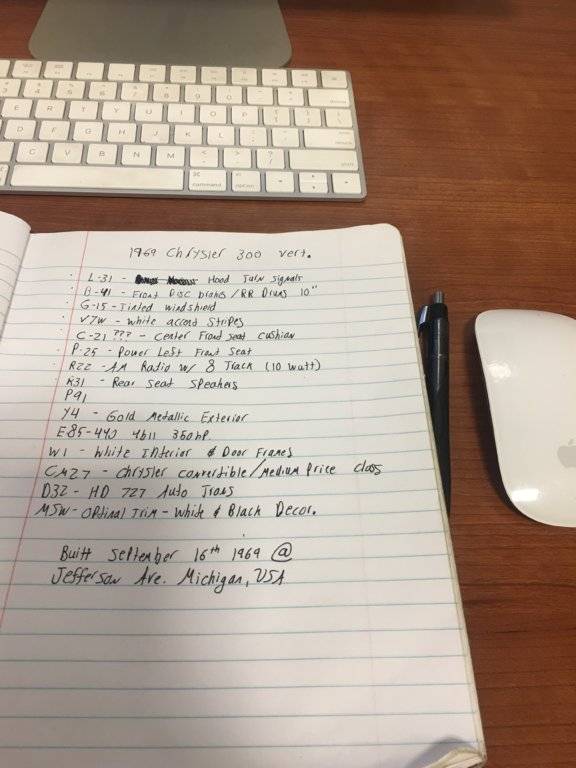 1969 Chrysler 300 vert.
L-31 - Hood Turn Signals
B-41 - Front Disc brakes / RR Drums 10"
G-15 - Tinted windshield
V7W - White accent Stripes
C-21 ??? - Center Front seat cushian
P-25 - Power Left Front Seat
R22 - AM Ratio w/ 8 Track (10 watt)
R31 - Rear Seat Speakers
P91
Y4 - Gold Metallic Exterior
E-85-440 4bll 350hp.
W1 - White Interior & Door Frames
CM27 - Chrysler convertible / Medium Price class
D32 - HD 727 Auto Trans
M5W - Optinal Trim - White & Black Decor.
Built September 16th 1969 @
Jefferson Ave. Michigan, USA
command
option